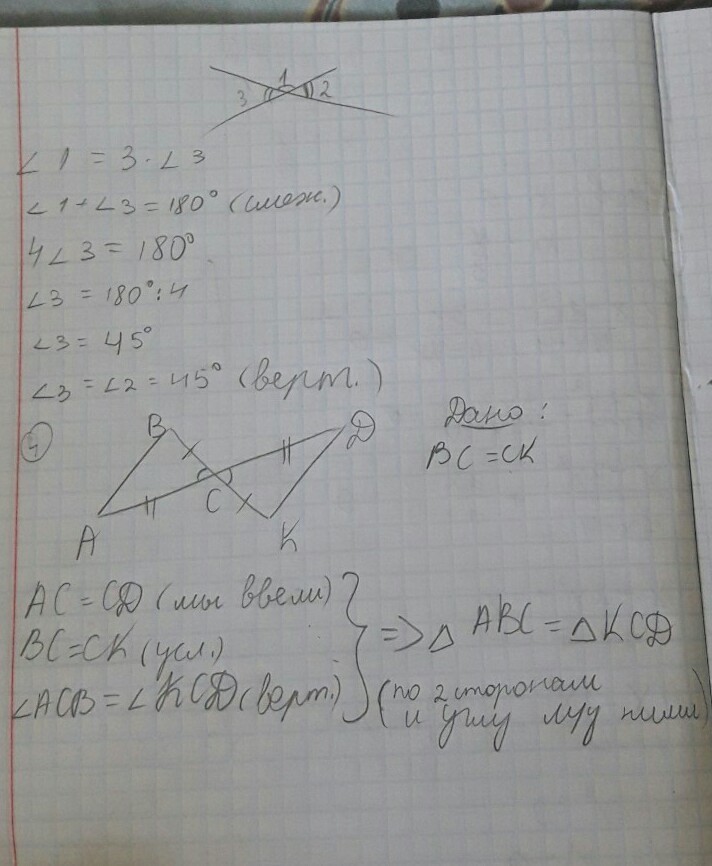 1
3 2
∠1 = 3·∠3
∠1+∠3 = 180° (смеж.)
4∠3 = 180°
∠3 = 180°:4
∠3 = 45°
∠3 = ∠2 = 45° (верт.)
4
B
D
C
A
K
Дано:
BC = CK
AC = CD (мы ввели)
BC = CK (усл.)
∠ACB = ∠KCD (верт.)
=> △ ABC = △KCD
(по 2 сторонам
и углу м/у ними)